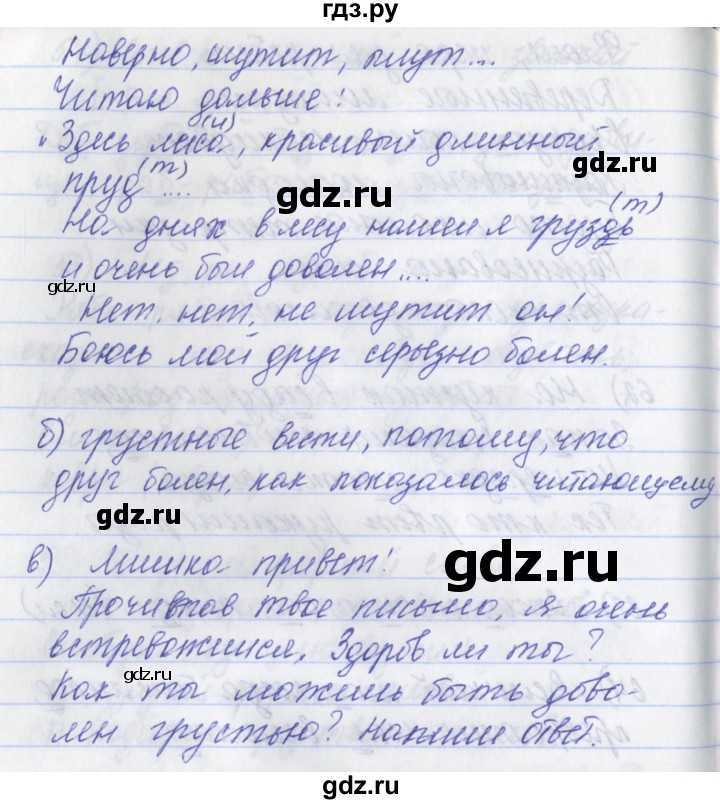 гдз.ру
Наверно, шутит, плут...
Читаю дальше:
(и)
"Здесь леса, красивый длинный
gdz.ru
(т)
пруд ....
(т)
На днях в лесу нашел я груздь
gdz.ru
и очень был доволен....
gdz.ru
Нет, нет, не шутит он!
Боюсь мой друг серьезно болен.
б) грустные вести, потому, что
друг болен, как показалось читающему
gdz.ru
в) Мишка привет!
gdz.ru
Прочитав твое письмо, я очень
встревожился. Здоров ли ты?
gdz.ru
Как ты можешь быть дово-
лен грустью? Напиши ответ.
gdz.ru
gdz.ru